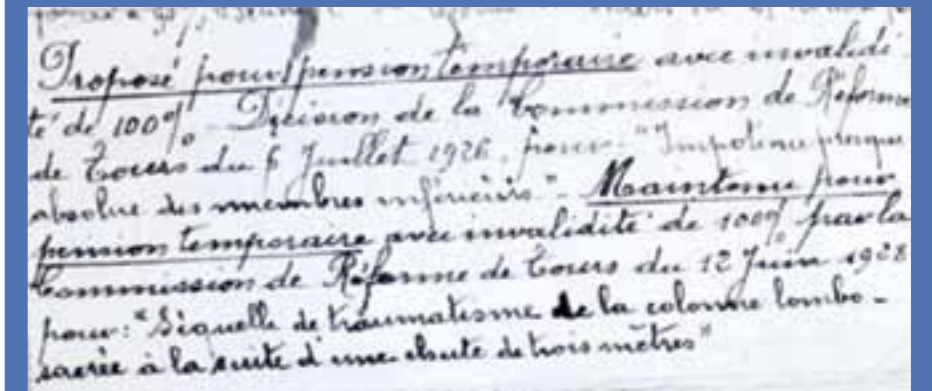 Proposé pour pension temporaire avec invalidi
té de 100% Décision de la Commission de Réforme
de Tours du 6 Juillet 1926, pour "Impotence presque
absolue des membres inférieurs". Maintenu pour
pension temporaire avec invalidité de 100% par la
Commission de Réforme de Tours du 12 Juin 1928
pour: "Séquelle de traumatisme de la colonne lombo-
sacrée à la suite d'une chute de trois mètres"